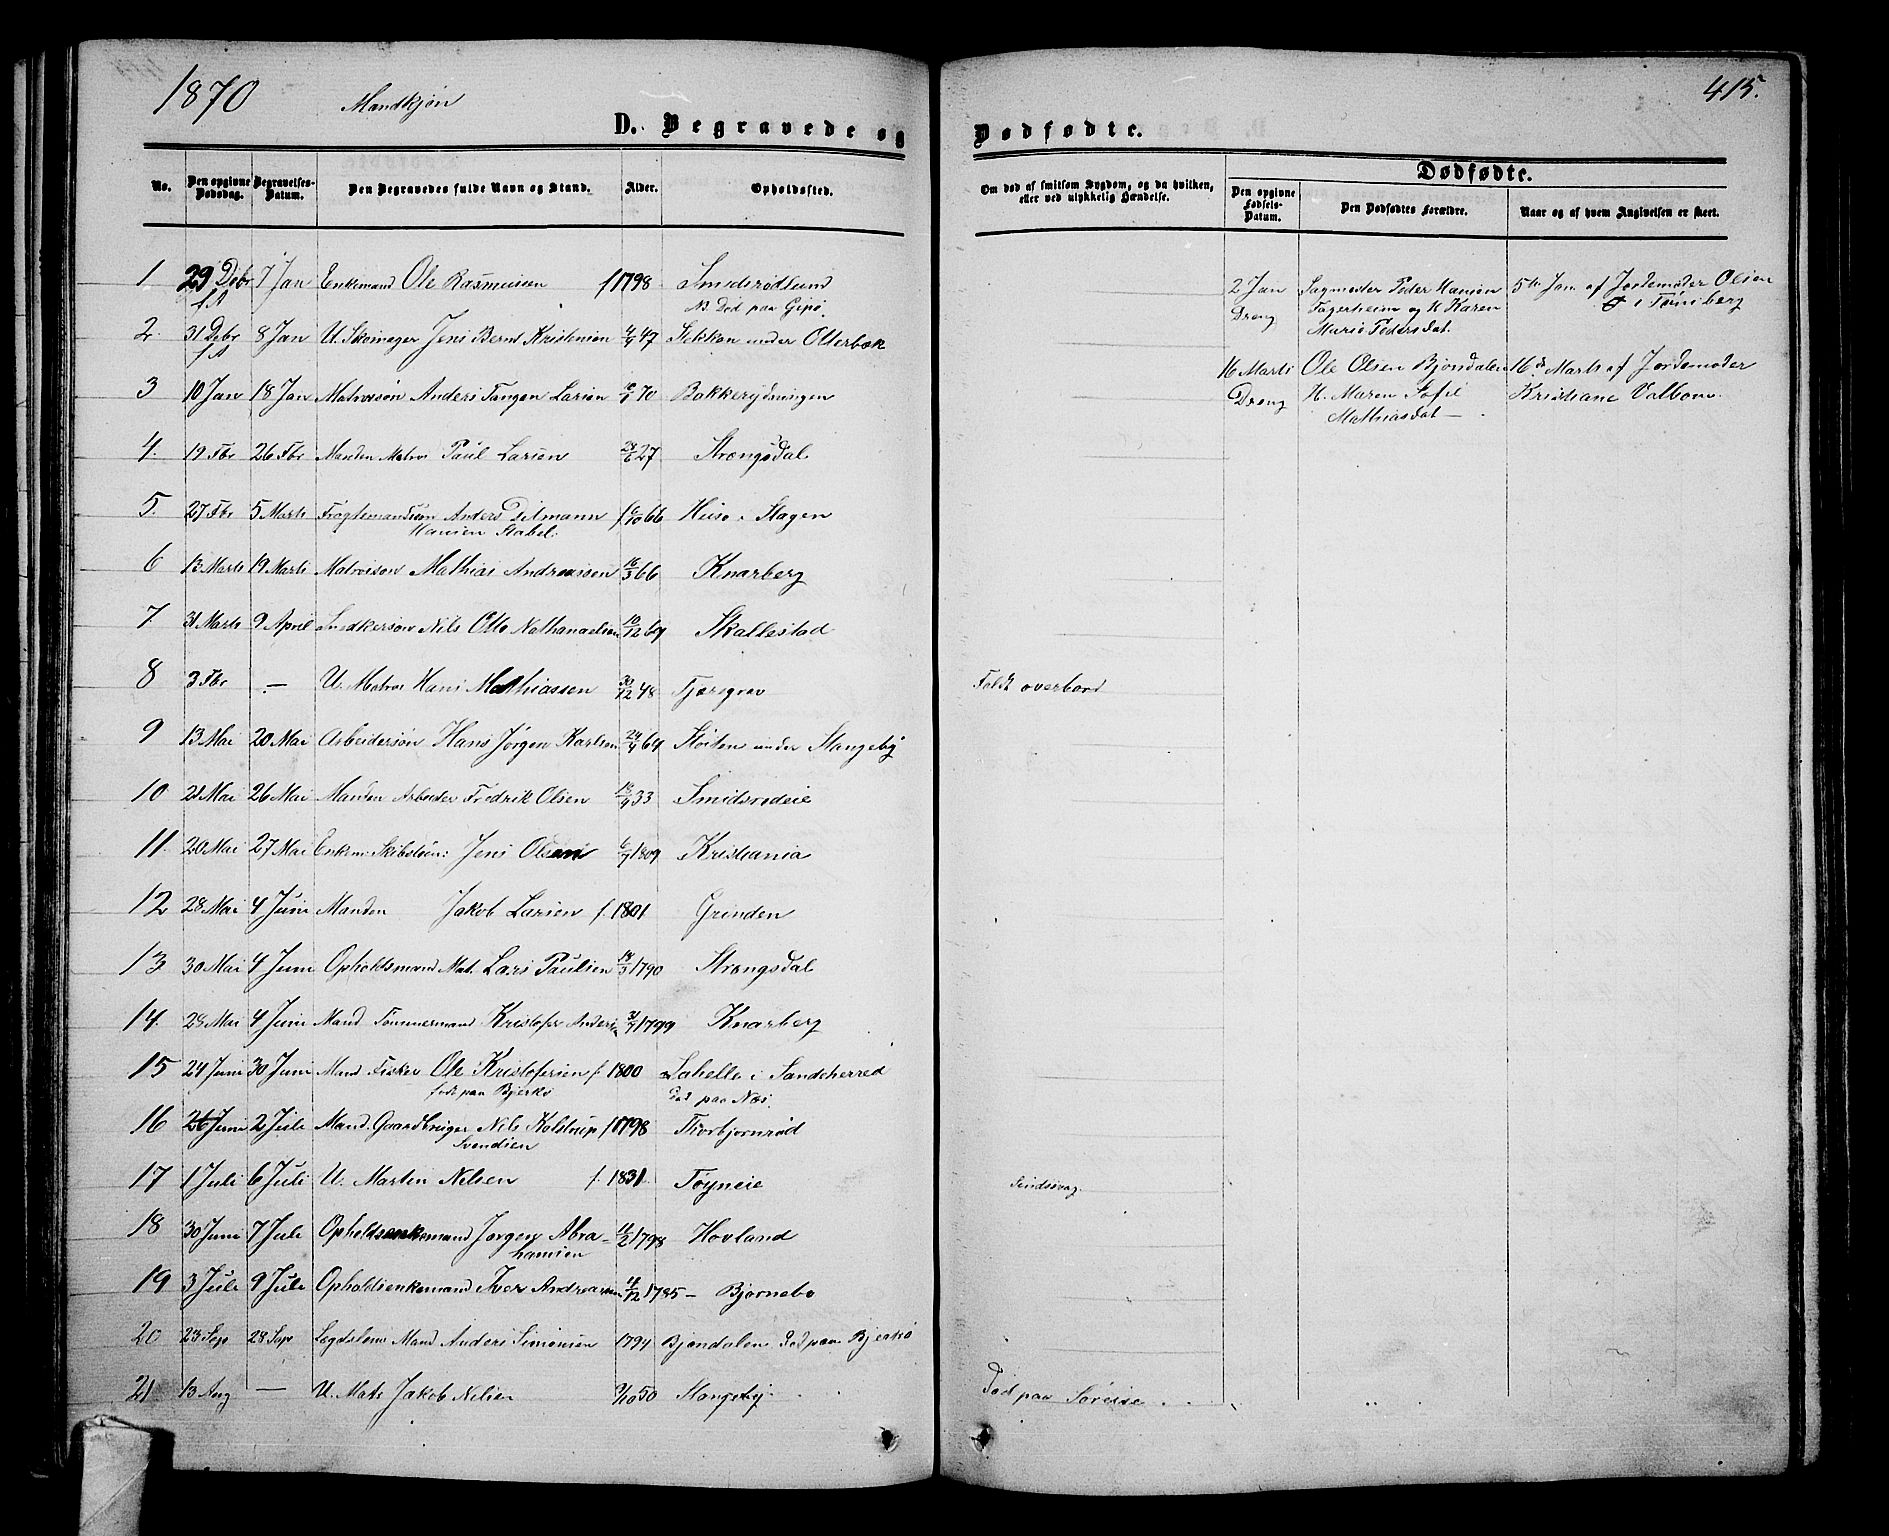 1870 Mandkjøn
415.
D. Begravede og Dødfødte.
No. Den opgivne Dødsdag. Begravelses-Datum. Den Begravedes fulde Navn og Stand. Alder. Opholdssted.
Om død af smitsom Sygdom, og da hvilken, eller ved ulykkelig Hændelse.
Dødfødte.
Den opgivne Fødsels-Datum. Den Dødfødtes Forældre. Naar og af hvem Angivelsen er skeet.
1 29 Debr 7 Jan Enkemand Ole Rasmussen f 1798 Smidsrødlund
f A N. Død paa Gipø.
2. 31 Debr 8 Jan U. Skomager Jens Bernt Kristensen 47 Stekkan under Otterbæk
f A
3 10 Jan 18 Jan Matrossøn Anders Tangen Larsen 70 Bakkerydningen
4. 19 Fbr 26 Fbr Manden Matros Paul Larsen 27 Strengsdal
5. 27 Fbr 5 Marts Fragtemandssøn Anders Ditmann f 6/10 66 Husø i Slagen
Hansen Stabel.
6 13 Marts 19 Marts Matrossøn Mathias Andreassen 16/3 66 Knarberg
7. 31 Marts 9 April Snedkersøn Nils Otto Nathanaelsen 10/12 69 Skallestad
8 3 Fbr — U. Matros Hans Mathiassen 30/12 48 Tjærsgrav Faldt overbord
9 13 Mai 20 Mai Arbeidersøn Hans Jørgen Karlsen 24/4 69 Støiten under Stangeby
10 21 Mai 26 Mai Manden Arbeider Fredrik Olsen 18/4 33 Smidsrødeie
11. 20 Mai 27 Mai Enkem: Skibstøm: Jens Olsen 6/7 1809 Kristiania
12 28 Mai 4 Juni Manden Jakob Larsen f. 1801 Grinden
13. 30 Mai 4 Juni Opholdsmand Mat. Lars Paulsen 18/3 1790 Strengsdal
14. 28 Mai 4 Juni Mand Tømmermand Kristofer Anders 1799 Knarberg
15 24 Juni 30 Juni Mand Fisker Ole Kristofersen f. 1800 Lahelle i Sandeherred
født paa Bjerkø Død paa Næs.
16 26 Juni 2 Juli Mand. Gaardbruger Nils Kolstrup f 1798 Thorbjørnrød
Svendsen
17 1 Juli 6 Juli U. Martin Nilsen f. 1831. Tøyneie Sindssvag.
18 30 Juni 7 Juli Opholdsenkemand Jørgen Abra- 11/2 1798 Hovland
hamsen
19 3 Juli 9 Juli Opholdsenkemand Iver Andreassen 1785 — Bjørnebo
20 23 Sep 28 Sep Lægdslem Mand Anders Simonsen 1794 Bjøndalen Død paa Bjerkø
21 13 Aug — U. Mats Jakob Nilsen 9/10 50 Stangeby. Død paa Søreise
2 Jan Sagmester Peder Hansen 5te Jan. af Jordemoder Olsen
Dreng Fagerheim og H Karen i Tønsberg
Marie Pedersdat.
16 Marts Ole Olsen Bjøndalen 16de Marts af Jordemoder
Dreng H. Maren Sofie Kristiane Valbom.
Mathiasdat —